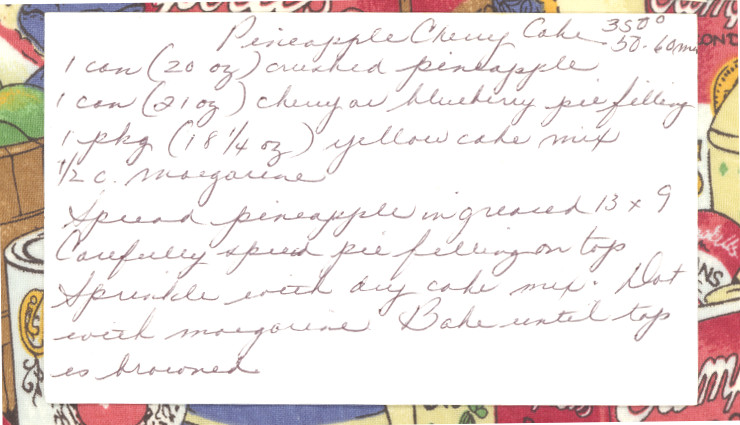 Pineapple Cherry Cake 350°
50-60 min
1 can (20 oz) crushed pineapple
1 can (21 oz) cherry or blueberry pie filling
1 pkg (18 1/4 oz) yellow cake mix
1/2 c. margarine
Spread pineapple in greased 13 x 9
Carefully spread pie filling on top
Sprinkle with dry cake mix. Dot
with margarine Bake until top
is browned